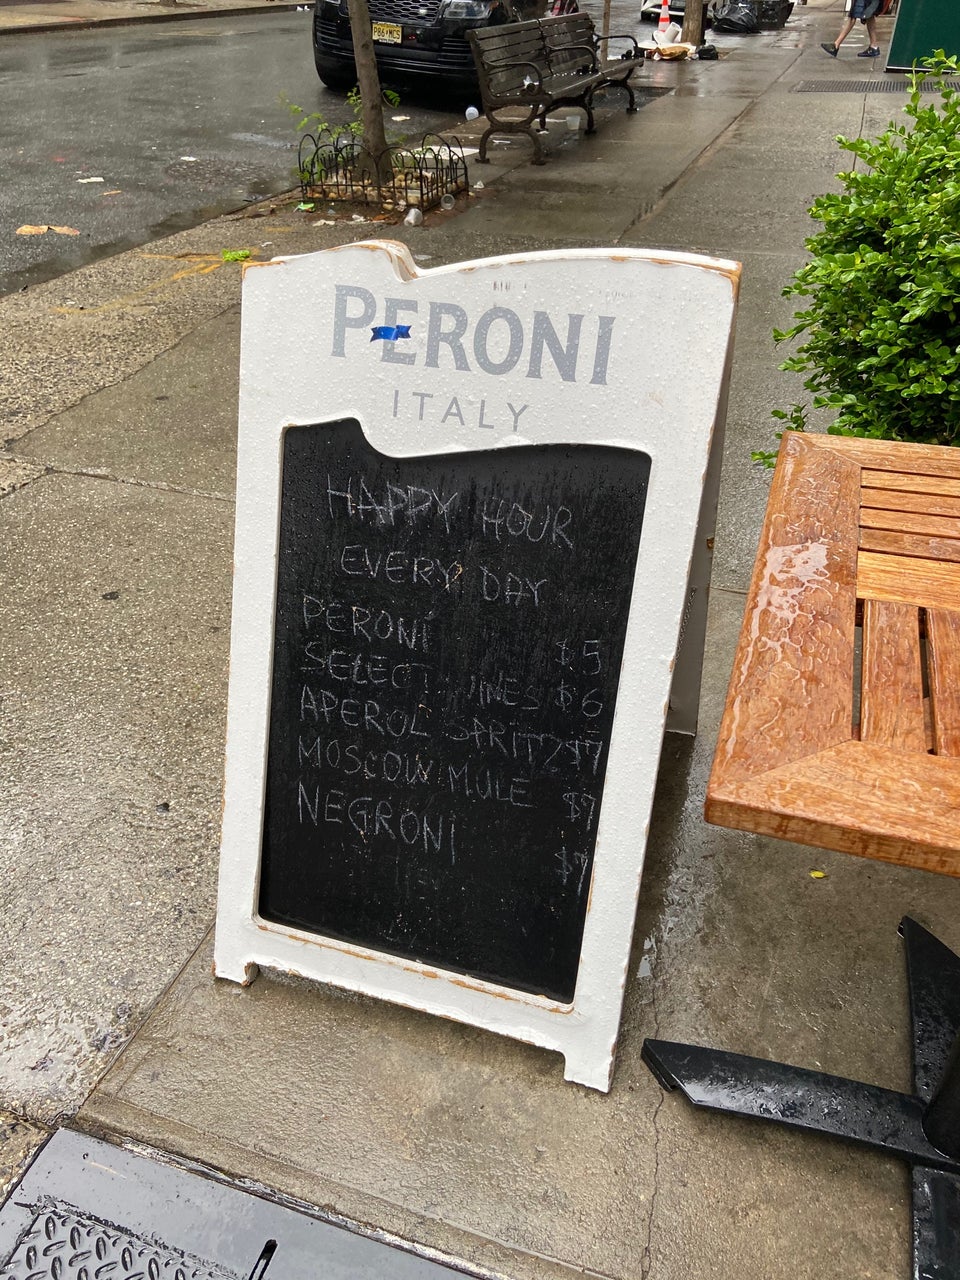 PERONI
ITALY
HAPPY HOUR
EVERY DAY
PERONI $5
SELECT WINES $6
APEROL SPRITZ $7
MOSCOW MULE $7
NEGRONI $7